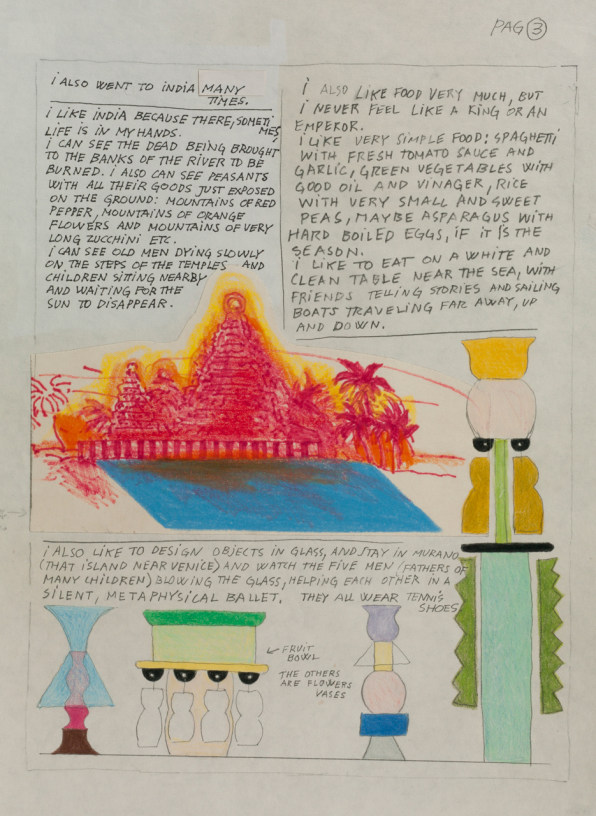 PAG 3
I ALSO WENT TO INDIA MANY
TIMES.
I LIKE INDIA BECAUSE THERE, SOMETI
MES,
LIFE IS IN MY HANDS.
I CAN SEE THE DEAD BEING BROUGHT
TO THE BANKS OF THE RIVER TO BE
BURNED. I ALSO CAN SEE PEASANTS
WITH ALL THEIR GOODS JUST EXPOSED
ON THE GROUND: MOUNTAINS OF RED
PEPPER, MOUNTAINS OF ORANGE
FLOWERS AND MOUNTAINS OF VERY
LONG ZUCCHINI ETC.
I CAN SEE OLD MEN DYING SLOWLY
ON THE STEPS OF THE TEMPLES AND
CHILDREN SITING NEARBY
AND WAITING FOR THE
SUN TO DISAPPEAR.
I ALSO LIKE FOOD VERY MUCH, BUT
I NEVER FEEL LIKE A KING OR AN
EMPEROR.
I LIKE VERY SIMPLE FOOD: SPAGHETTI
WITH FRESH TOMATO SAUCE AND
GARLIC, GREEN VEGETABLES WITH
GOOD OIL AND VINAGER, RICE
WITH VERY SMALL AND SWEET
PEAS, MAYBE ASPARAGUS WITH
HARD BOILED EGGS, IF IT IS THE
SEASON.
I LIKE TO EAT ON A WHITE AND
CLEAN TABLE NEAR THE SEA, WITH
FRIENDS TELLING STORIES AND SAILING
BOATS TRAVELING FAR AWAY, UP
AND DOWN.
I ALSO LIKE TO DESIGN OBJECTS IN GLASS, AND STAY IN MURANO
(THAT ISLAND NEAR VENICE) AND WATCH THE FIVE MEN (FATHERS OF
MANY CHILDREN) BLOWING THE GLASS, HELPING EACH OTHER IN A
SILENT, METAPHYSICAL BALLET. THEY ALL WEAR TENNIS
SHOES
FRUIT
BOWL
THE OTHERS
ARE FLOWERS
VASES